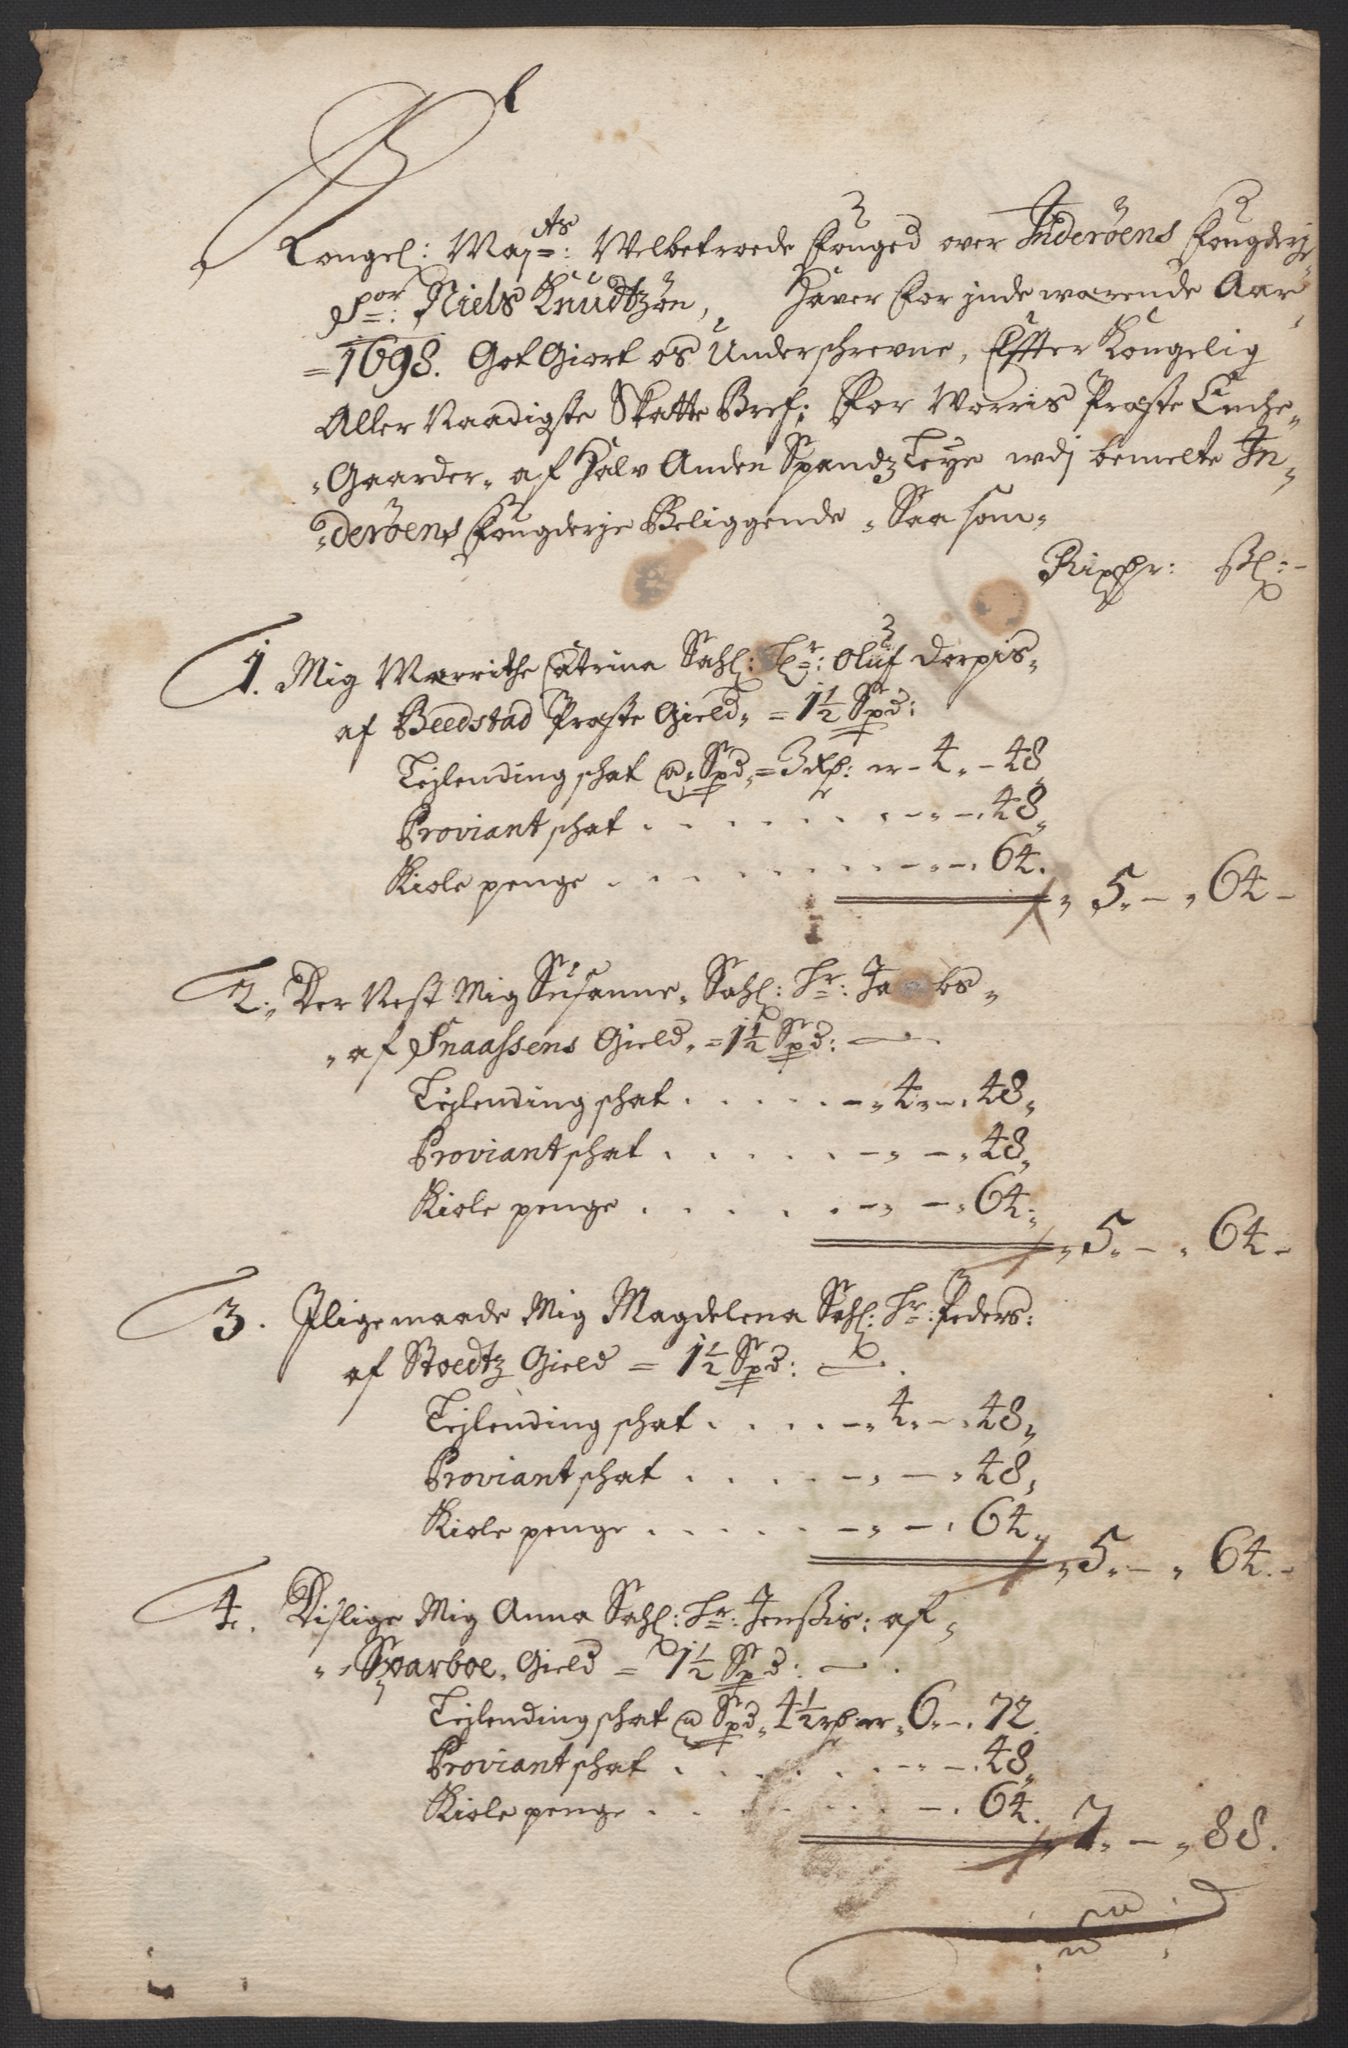 Kongel: Maj:ts: Velbetroede Fouged over Inderöens Fougderje
Sor: Niels Knudtzön, Haver for jnde warende Aar
=1698. Got Giort os Underschrevne, Effter Kongelig
Aller Naadigste Skatte Bref; For Worris Præste Enche„
„Gaarder„ af Halv Anden Spandz Leye wdj bemelte In„
„deröens Fougderje Beliggende „ Saa som„
Rixdr: ßl:
1. Mig Marrithe Catrina Sahl: Hr: Oluf Dorpis„
af Beedstad Præste Gield„ = 1½ Spd:
Lejlending schat @ Spd„ = 3 rd: er – 4 „ – 48„
Proviant schat . . . . . . . – „ – „ 48„
Kiole penge . . . . . . . – „ – „ 64.
„ 5 „ – „ 64 –
2. Der Nest Mig Susanne„ Sahl: Hr: Jacobs„
„ af Snaassens Gield„ = 1½ Spd: –
Lejlending schat . . . . . – „ 4 „ – „ 48„
Proviant schat . . . . . – „ – „ 48„
Kiole penge . . . . . – „ – „ 64„
„ 5 „ – „ 64 –
3. Jlige maade Mig Magdelena Sahl: Hr: Peders:
af Stoedtz Gield = 1½ Spd: – .
Lejlending schat . . . . – „ 4 „ – „ 48„
Proviant schat . . . . – „ – „ 48„
Kiole penge . . . . . – „ – „ 64„
„ 5 „ – „ 64. –
4. Dislige Mig Anna Sahl: Hr: Jenssis: af„
„ Sparboe„ Gield = 1½ Spd: – .
Lejlending schat @ Spd„ 4½ rd: er „ 6 „ – „ 72.
Proviant schat . . . . . . – „ – „ 48„
Kiole penge . . . . . . . – „ 64.
„ 7 „ – „ 88.